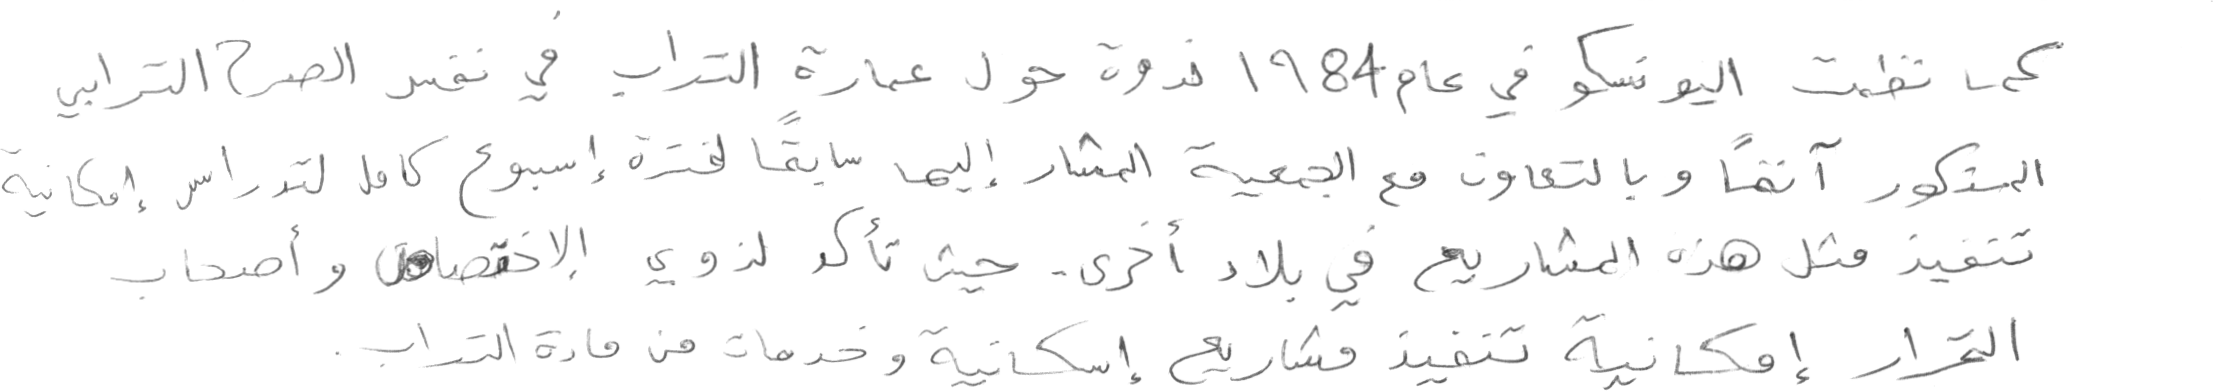 كما نظمت اليونسكو في عام 1984 ندوة حول عمارة التراب في نفس الصرح الترابي
المذكور آنفًا وبالتعاون مع الجمعية المشار إليها سابقًا لفترة إسبوع كامل لتدراس إمكانية
تنفيذ مثل هذه المشاريع في بلاد أخرى. حيث تأكد لذوي الإختصاص وأصحاب
القرار إمكانية تنفيذ مشاريع إسكانية وخدمات من مادة التراب.